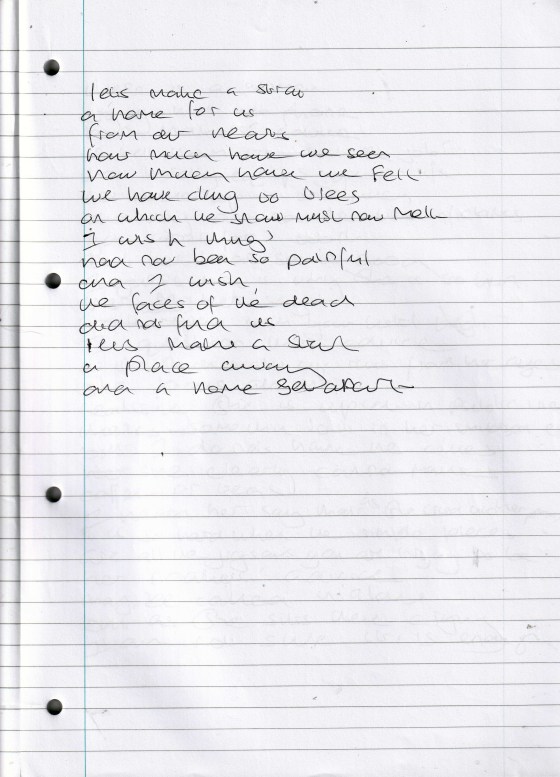 lets make a start
a home for us
from our hearts
how much have we seen
how much have we felt
we have clung to trees
on which the snow must now melt
I wish things
had not been so painful
and I wish,
the faces of the dead
did not find us
lets make a start
a place away
and a home separate